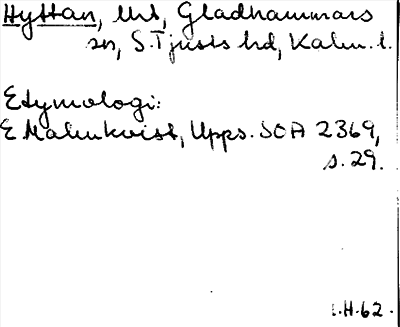 Hyttan, Uht, Gladhammars
sn, S. Tjusts hd, Kalm. l.
Etymologi:
E Malmkvist, Upps. SOA 2369,
s. 29.
I.H.62.